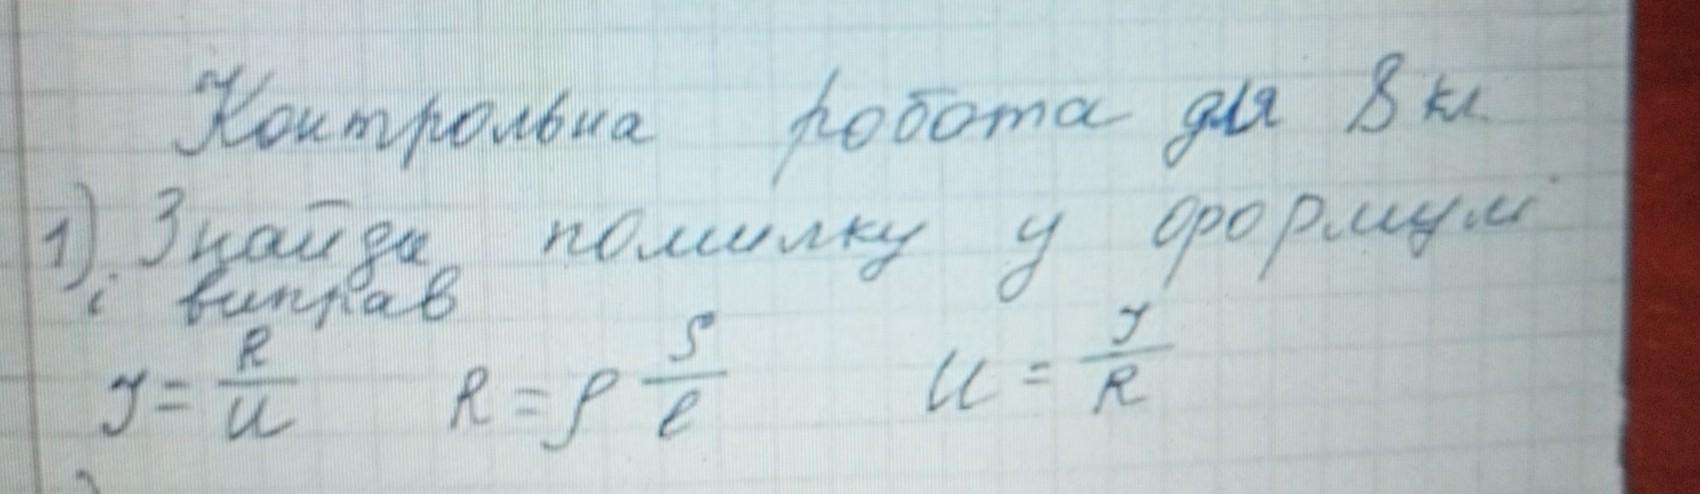 Контрольна робота для 8 кл
1). Знайди помилку у формулі
і виправ
I = R/U   R = ρ S/l   U = I/R